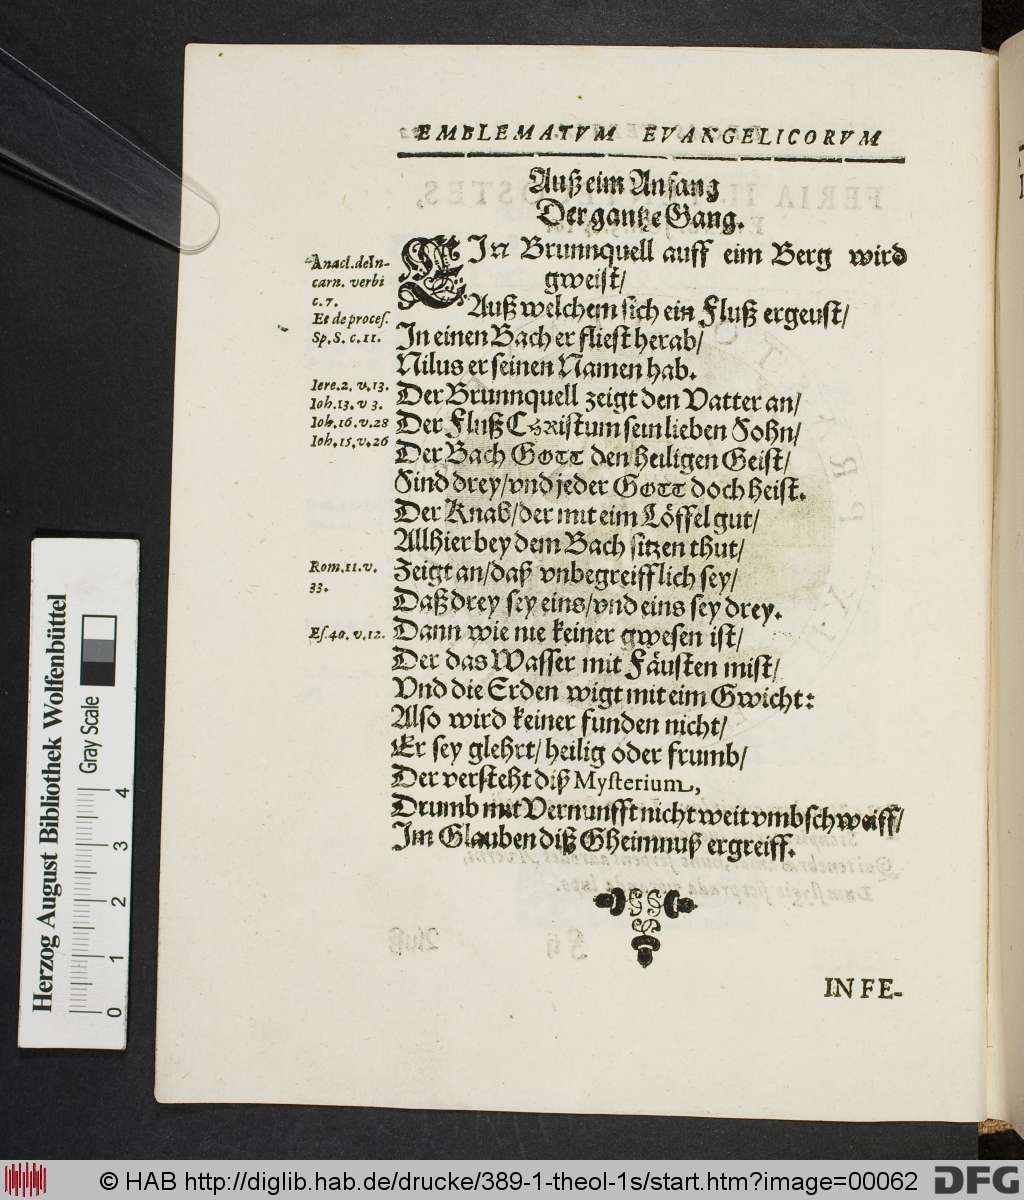 EMBLEMATVM EVANGELICORVM
Auß eim Anfang
Der gantze Gang.
EIn Brunnquell auff eim Berg wird
gweist/
Auß welchem sich ein Fluß ergeust/
In einen Bach er fliest herab/
Nilus er seinen Namen hab.
Der Brunnquell zeigt den Vatter an/
Der Fluß CHRistum sein lieben Sohn/
Der Bach GOTT den heiligen Geist/
Sind drey/vnd jeder GOTT doch heist.
Der Knab/der mit eim Löffel gut/
Allhier bey dem Bach sitzen thut/
Zeigt an/daß vnbegreifflich sey/
Daß drey sey eins/vnd eins sey drey.
Dann wie nie keiner gwesen ist/
Der das Wasser mit Fäusten mist/
Vnd die Erden wigt mit eim Gwicht:
Also wird keiner funden nicht/
Er sey glehrt/heilig oder frumb/
Der versteht diß Mysterium,
Drumb mit Vernunfft nicht weit vmbschweiff/
Im Glauben diß Gheimnuß ergreiff.
Anacl. de In-
carn. verbi
c. 7.
Et de proces.
Sp. S. c. 11.
Iere. 2. v. 13.
Ioh. 13. v 3.
Ioh. 16. v. 28
Ioh. 15. v. 26
Rom. 11. v.
33.
Es. 40. v. 12.
IN FE-
Herzog August Bibliothek Wolfenbüttel
Gray Scale
0 1 2 3 4
© HAB http://diglib.hab.de/drucke/389-1-theol-1s/start.htm?image=00062
DFG